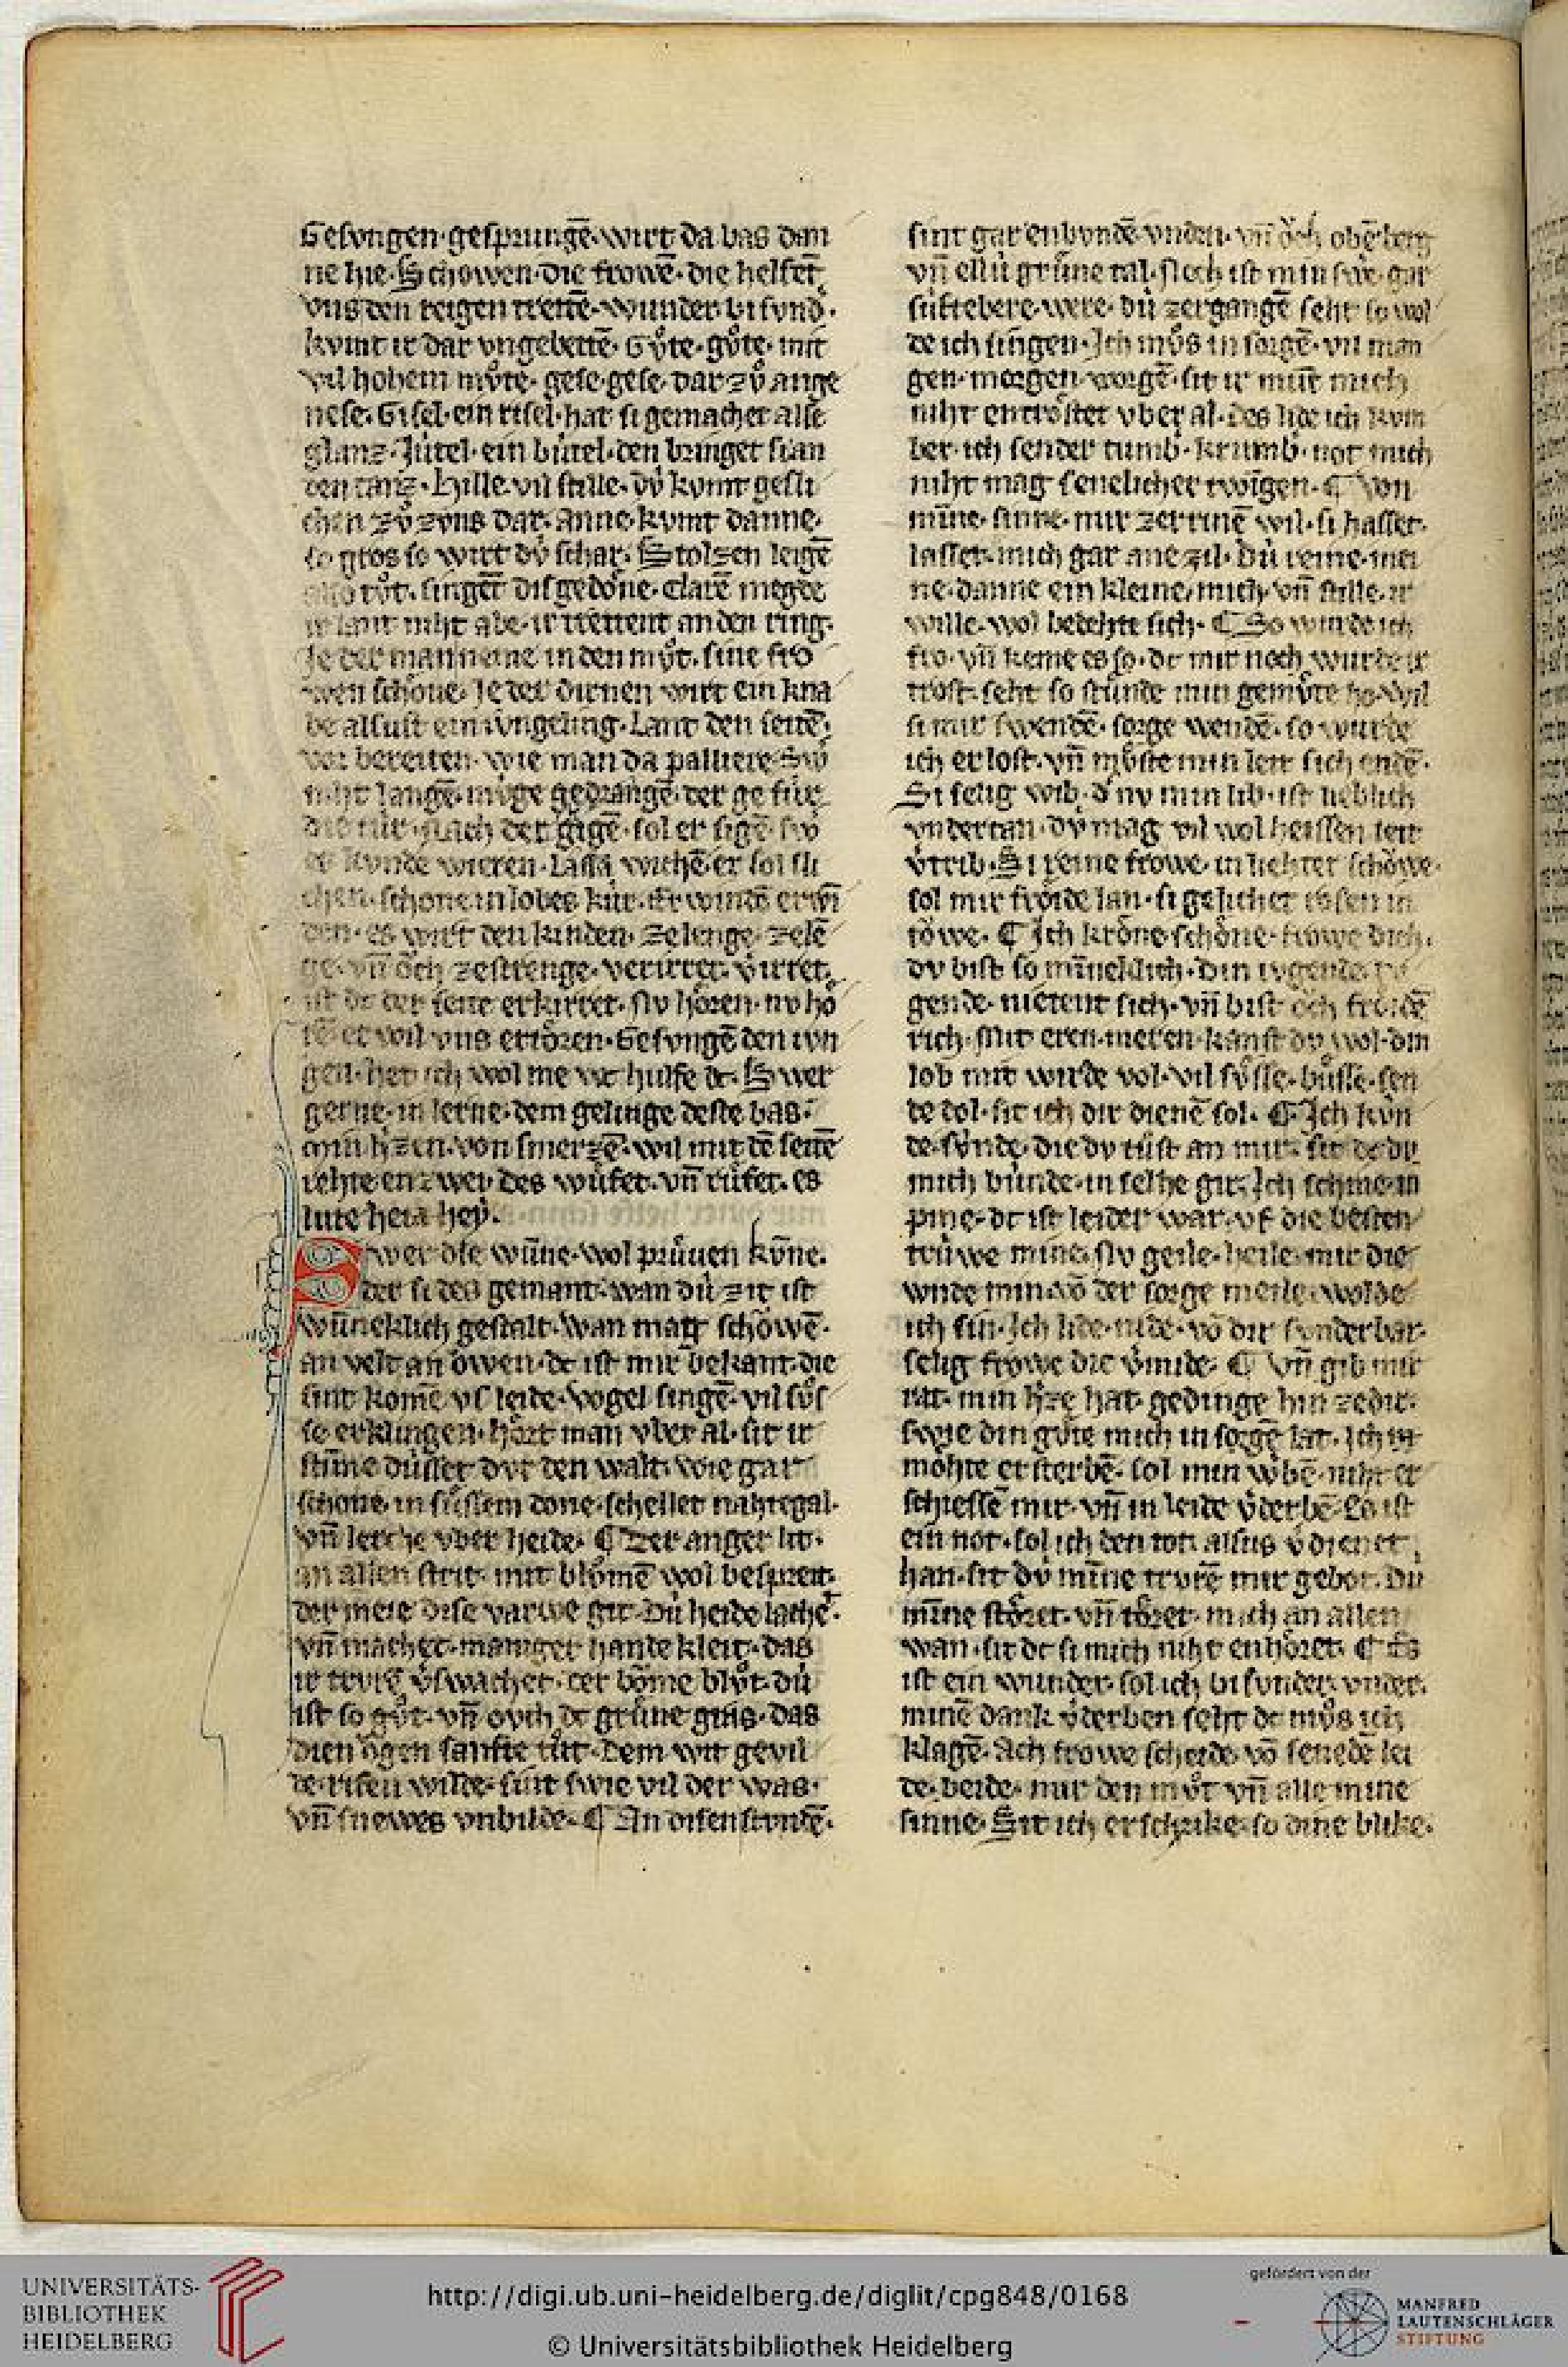 Gesvngen·gesprungē·wirt da bas dan
ne hie·Schowen·die frowē·die helfēt
vns den reigen trettē·wunder bi svnd̾·
kvmt ir dar vngebettē·Gv̊te·gv̊te·mit
vil hohem mv̊te·gese·gese·dar zv̊ ange
nese·Gisel·ein risel·hat si gemachet alse
glanz·Jútel·ein bútel·den bringet si an
den tanz·Hille·vil stille·dv́ kvmt gesli
chen zv̊ zvns dar·Anne·kvmt danne·
so gros so wirt dv́ schar·Stolzen leigē
also tv̊t·singēt dis gedóne·Clarē megde
ir lant niht abe·ir trettent an den ring·
Je der man neme in den mv̊t·sine fro
wen schóne·Je der dirnen wirt ein kna
be alsust ein ivngeling·Lant den seitē·
vor bereiten·wie man da palliere Sw
niht langē·múge gedrangē·der ge fúr
die túr·Nach der gigē·sol er sigē·swo
er kvnde wieren·Lassa wichē·er sol sli
chen·schone in lobes kúr·Er windē erwī
den·es wirt den kinden·ze lenge·ze lē
ge·vn̄ och ze strenge·verirret·v̾irret·
ist dc der seite erkirret·Nv hóren·nv hó
rē er wil vns ertóren·Gesvngē den ivn
gen·het ich wol me wc hulfe dc·Swer
gerne·in lerne·dem gelinge deste bas·
min h̾zen·von smerzē·wil mit dē seitē
rehte enzwei·des wûfet·vn̄ rûfet·es
lute heia hei·
Swer die wūne·wol prûuen kv́ne·
der si des gemant·wan dú zit ist
wūneklich gestalt·Wan mag schowē·
an velt an owen·dc ist mir bekant·die
sint komē vs leide·Vogel singē·vil sv̊s
se erklingen·hórt man vber al·sit ir
stim̄e dússet dvr den walt·wie gar
schone·in sûssem done·schellet nahtegal·
vn̄ lerche vber heide·¶ Der anger lit·
an allen strit·mit blv̊mē wol bespreit·
der meie dise varwe git·Dú heide lachet·
vn̄ machet·maniger hande kleit·das
ir trvrē vfwachet·der bóme blv̊t·dú
ist so gv̊t·vn̄ ovch dc grûne gras·das
dien ogen sanfte tv̊t·Dem wit gevil
de·risen wilde·sint swie vil der was·
vn̄ snewes vnbilde·¶ An disen stvndē·
sint gar enbvndē·vnden·vn̄ óch obē berg
vn̄ ellú grûne tal·Noch ist min swe̾·gar
suftebere·were·dú zergangē seht so wol
de ich singen·Ich mv̊s in sorgē·vn̄ man
gen·morgen·worgē·sit ir mūt mich
niht entróstet vber al·des lide ich kvm
ber·ich sender tumb·krumb·not mich
niht mag senelicher twīgen·¶ Von
mīne·sinne·mir zerrinē wil·si hasset·
lasset·mich gar ane zil·Dú reine·mei
ne·danne ein kleine·mich·vn̄ stille·ir
wille·wol bedehte sich·¶ So wurde ich
fro·vn̄ keme es so·dc mir noch wurde ir
trost·seht so stûnde min gemv̊te ho·Wil
si mir swendē·sorge wendē·so wurde
ich erlost·vn̄ mv̊ste min leit sich endē·
Si selig wib·d̾ nv min lib·ist lieblich
vndertan·dv́ mag vil wol heissen leit
v̾trib·Si reine frowe·in liehter schówe·
sol mir fróide lan·si gelichet rosen in
towe·¶ Ich króne schóne·frowe dich·
dv bist so mīneklich·din tvgende·iv
gende·nietent sich·vn̄ bist óch fróidē
rich·Mit eren·meren·kanst dv wol·din
lob mit wirde vol·vil sv̊sse·bûsse·sen
de dol·sit ich dir dienē sol·¶ Ich kvn
de·sv́nde·die dv tûst an mir·sit dc dv
mich bvnde·in selhe gir·Ich schine·in
pine·dc ist leider war·vf die besten
trúwe mine·Nv geile·heile·mir die
wnde min·vō der sorge meile·wolde
ich sin·Ich lide·nide·vō dir svnderbar·
selig frowe die v̾mide·¶ Vn̄ gib mir
rat·min h̾ze hat·gedinge hin ze dir·
swie din gv̊te mich in sorgē lat·Ich
móhte ersterbē·sol min w̾bē·niht er
schiessē mir·vn̄ in leide v̾derbē·Es ist
ein not·sol ich den tot·alsus v̾dienet
han·sit dv́ mīne trvrē mir gebot·Dú
mīne stóret·vn̄ tóret·mich an allen
wan·sit dc si mich niht enhóret·¶ Es
ist ein wunder·sol ich bisvnder·vnder·
minē dank v̾derben seht dc mv̊s ich
klagē·Ach frowe scheide·vō senedē lei
de·beide·mir den mv̊t vn̄ alle mine
sinne·Sit ich erschrike·so dine blike·
UNIVERSITÄTS-
BIBLIOTHEK
HEIDELBERG
http://digi.ub.uni-heidelberg.de/diglit/cpg848/0168
© Universitätsbibliothek Heidelberg
gefördert von der
MANFRED
LAUTENSCHLÄGER
STIFTUNG